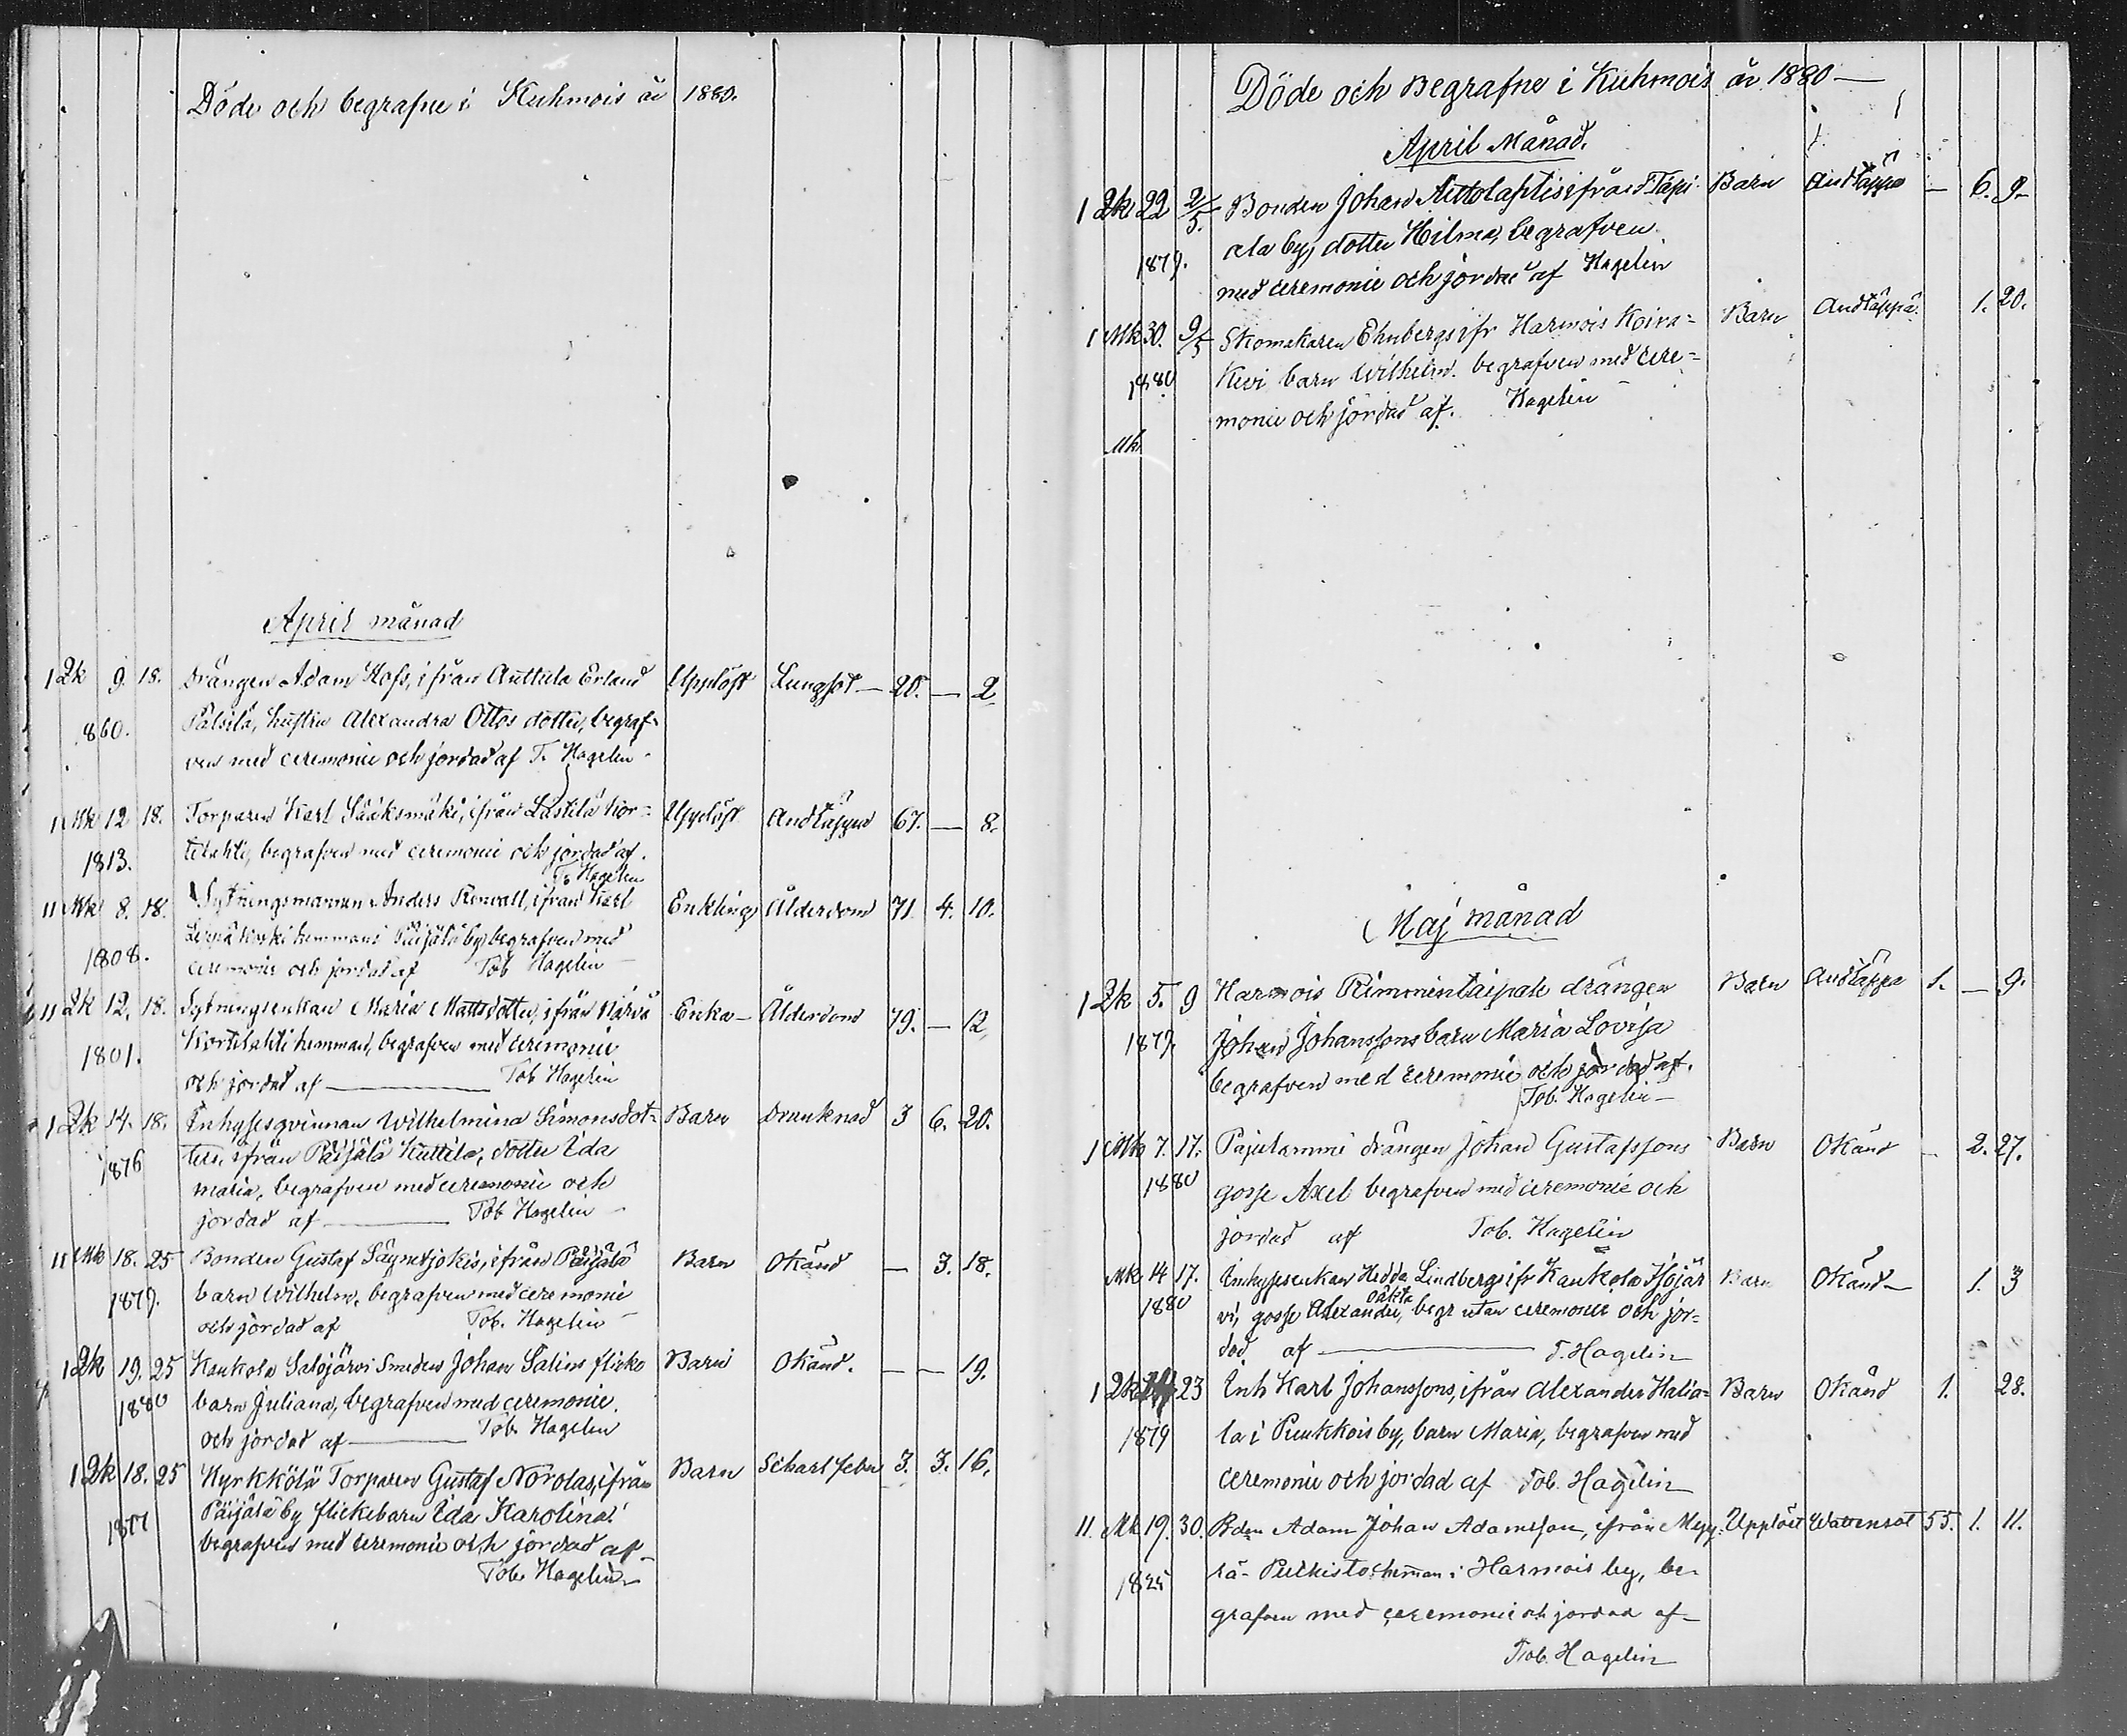 Döde och begrafne i Kuhmois år 1880.
April månad
1 Qk 9. 18. Drängen Adam Hofs, ifrån Auttula Erland Upplöst Lungsot — 20. — 2.
1860. Pälsilä, hustru Alexandra Ottos dotter, begraf-
ven med ceremonie och jordad af T. Hagelin
1 Mk 12 18. Torparen Karl Sääksmäki, ifrån Lästilä Kor= Upplöst Andtäppa 67. — 8.
1813. telahti, begrafven med ceremonie och jordad af.
T. Hagelin
11 Mk 8. 18. Sytningsmannen Anders Renvall, ifrån Karl Enkling Ålderdom 71. 4. 10.
1808. Leppäkoski hemmani Päijälä by begrafven med
ceremonie och jordad af Tob Hagelin —
11 Qk 12. 18. Sytningsenkan Maria Mattsdotter, ifrån Närvä Enka — Ålderdom 79. — 12.
1801. Kortelahti hemman, begrafven med ceremonie
och jordad af — Tob Hagelin
1 Qk 14. 18. Inhysesqvinnan Wilhelmina Simonsdot= Barn Drunknad 3 6. 20.
1876 ters, ifrån Päijälä Kuttila, dotter Eda
maria, begrafven med ceremonie och
jordad af — Tob Hagelin —
11 Mk 18. 25 Bonden Gustaf Säynetjokis, ifrån Päijälä Barn Okänd — 3. 18.
1879. barn Wilhelm, begrafven med ceremonie
och jordad af Tob. Hagelin —
1 Qk 19. 25 Kaukola Salojärvi Smeden Johan Salins flicko Barn Okänd. — — 19.
1880 barn Juliana, begrafven med ceremonie.
och jordad af — Tob. Hagelin
1 Qk 18. 25 Kyrkkölä Torparen Gustaf Norolas, ifrån Barn Scharlfeber 3. 3. 16.
1877 Päijälä by flickebarn Eda Karolina
begrafven med ceremonie och jordad af —
Tob. Hagelin —
Döde och Begrafne i Kuhmois år 1880 —
April Månad.
1 Qk 22 2/5. Bonden Johan Auttolahtis ifrån Tapi Barn Andtäppa — 6. 9.
1879. ala by, dotter Hilma, begrafven
med ceremonie och jordad af Hagelin
1 Mk 30. 9/5 Skomakaren Ehnbergs ifr Harmois Koiva= Barn Andtäppa. 1. 20.
1880 Kivi barn Wilhelm. begrafven med cere=
monie och jordad af. Hagelin —
Mk
Maj månad
1 Qk 5. 9 Harmois Rimmintaipale drängen Barn Andtäppa 1. — 9.
1879. Johan Johanssons barn Maria Lovisa
begrafven med ceremonie och jordad af.
Tob. Hagelin —
1 Mk 7. 17. Pajulammi drängen Johan Gustafssons Barn Okänd — 2. 27.
1880 gosse Axel begrafven med ceremonie och
jordad af Tob. Hagelin
Mk 14 17. Inhysesenkan Hedda Lindbergs ifr Kaukola Isojär Barn Okänd — 1. 3
oäkta
1880 vi, gosse Alexander, begr utan ceremonie och jor=
dad af — T. Hagelin
1 Qk 23 Inh Karl Johanssons, ifrån Alexander Halia= Barn Okänd 1. 28.
1879 la i Puukkois by, barn Maria, begrafven med
ceremonie och jordad af Tob. Hagelin
11. Mk 19. 30. Bden Adam Johan Adamsson, ifrån Mepp. Upplöst Wattensot 55. 1. 11.
1825 lä- Pulkisto hemman i Harmois by, be-
grafven med ceremonie och jordad af —
Tob. Hagelin